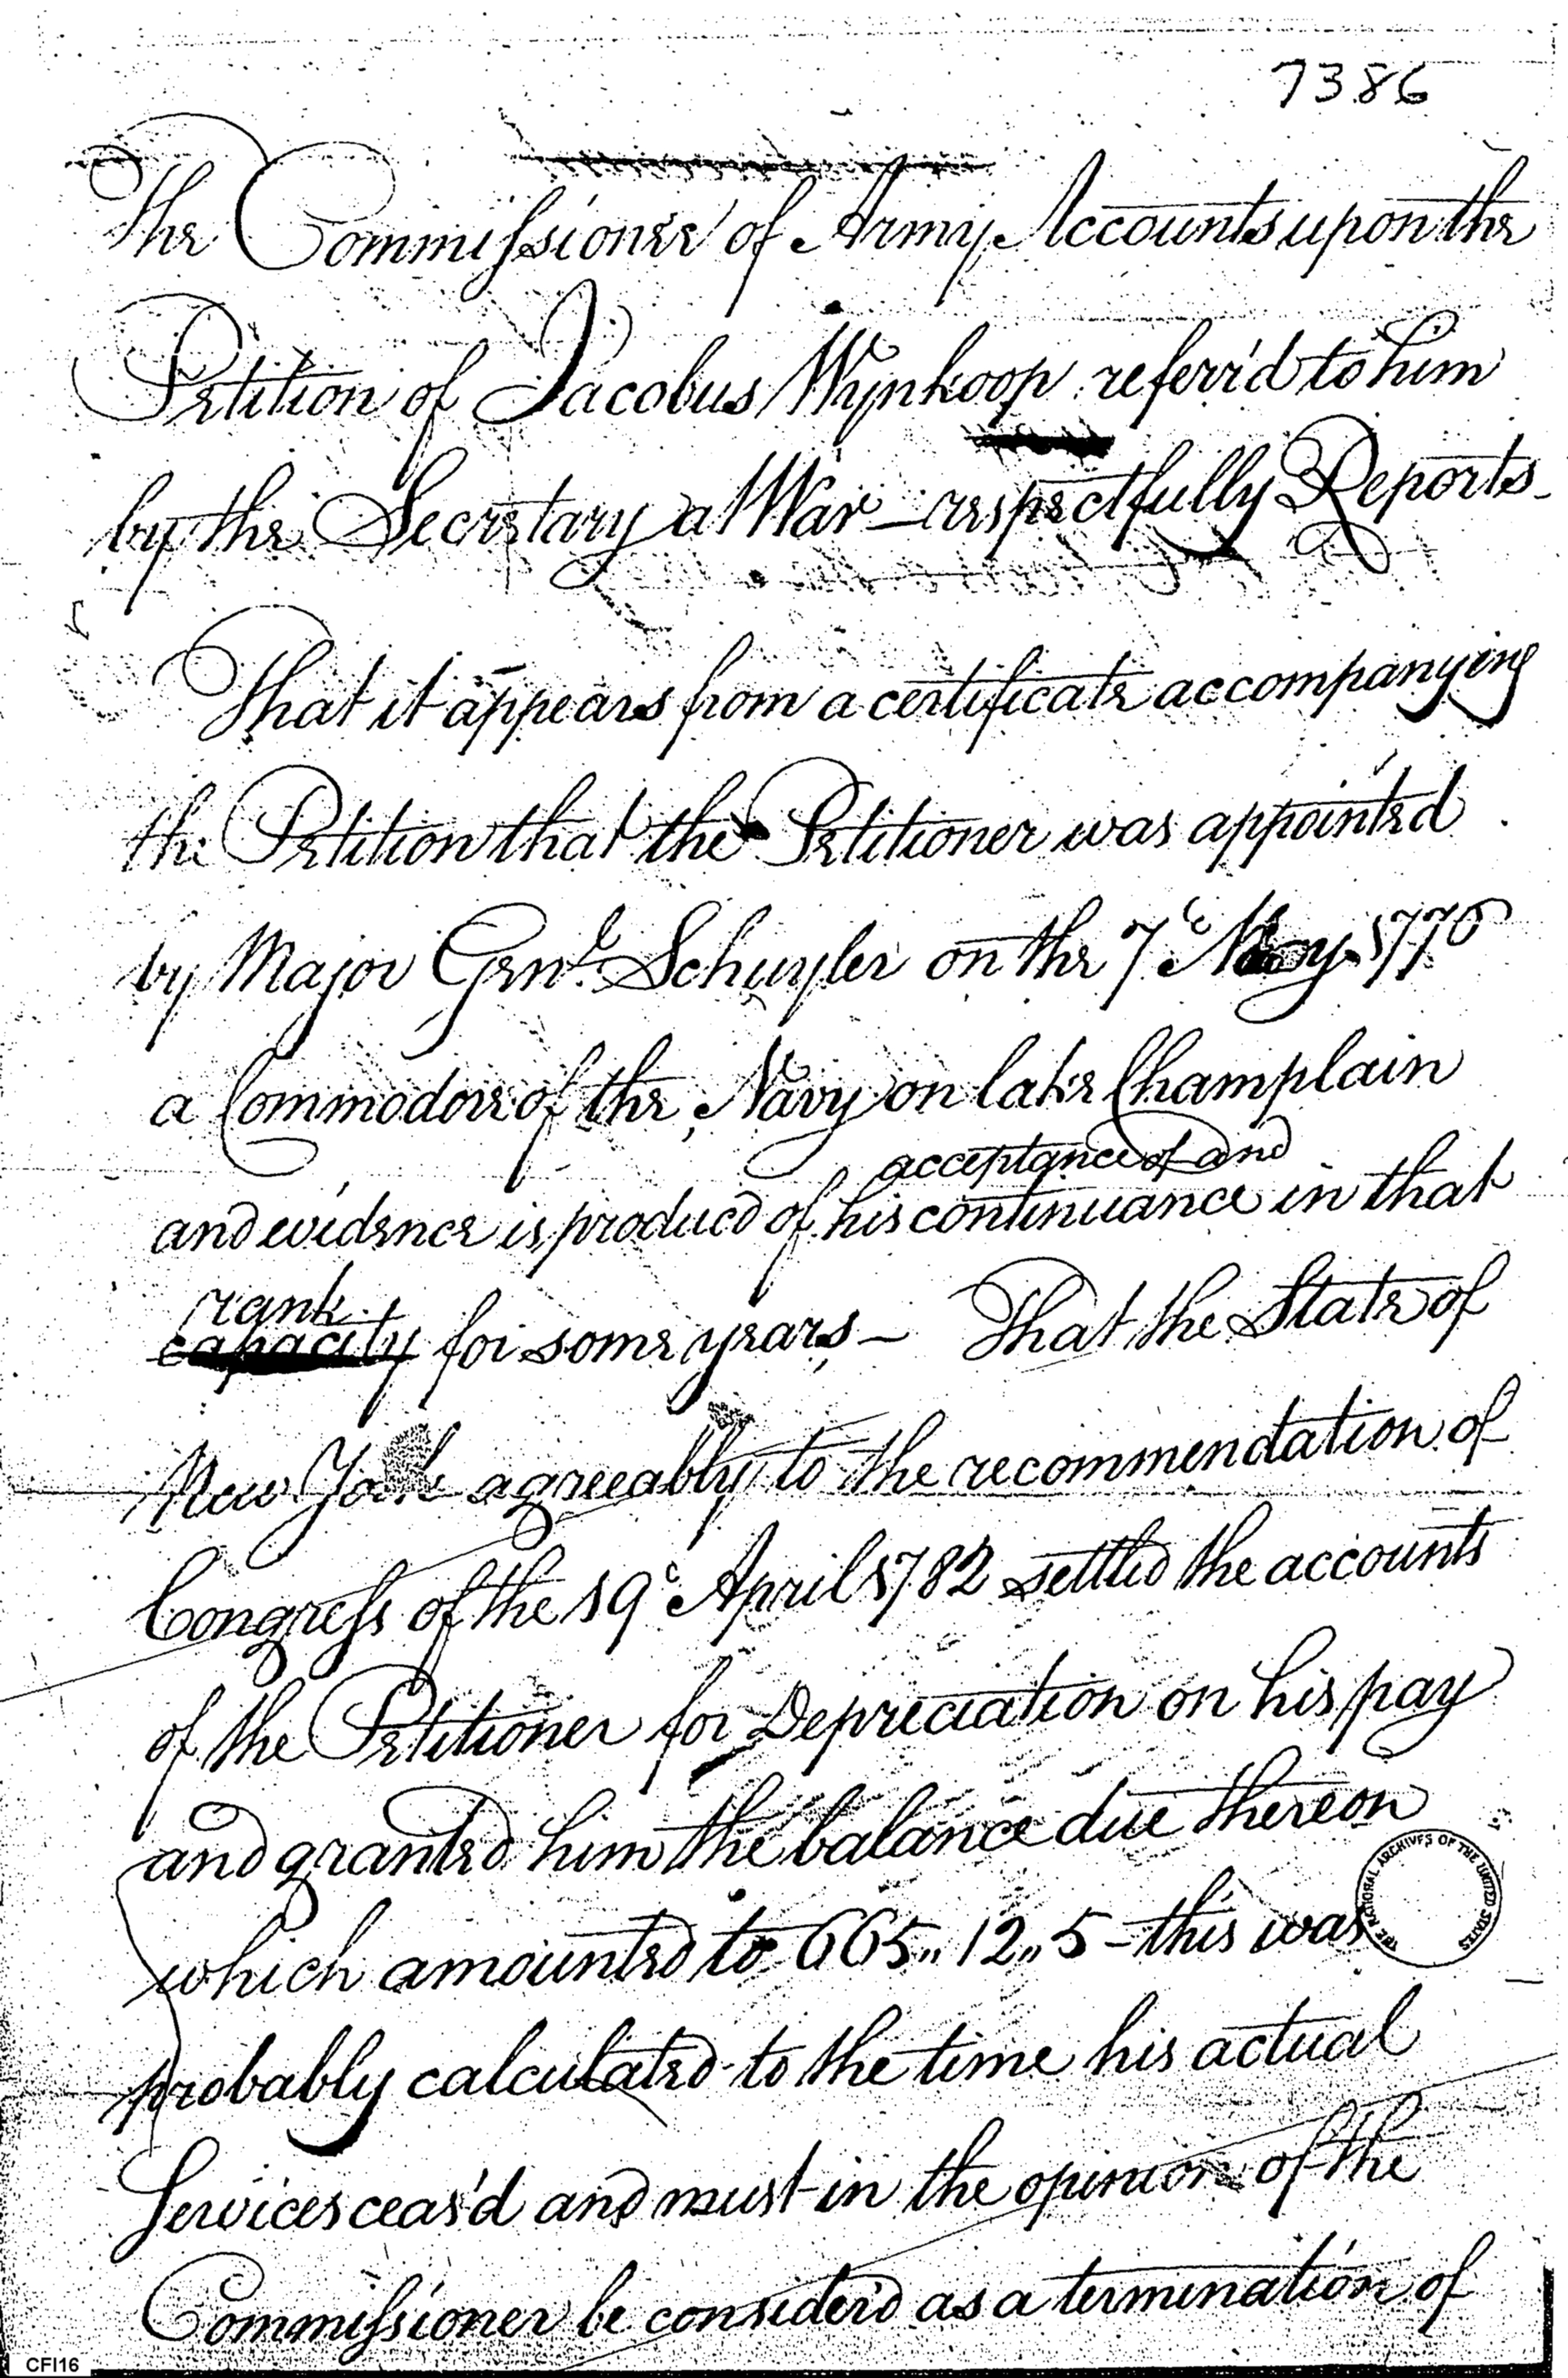 7386
The Commissioner of Army Accounts upon the
Petition of Jacobus Wynkoop referr'd to him
by the Secretary at War – respectfully Reports –
That it appears from a certificate accompanying
the Petition that the Petitioner was appointed
by Major Genl. Schuyler on the 7th May 1776
a Commodore of the Navy on lake Champlain
acceptance of and
and evidence is produced of his continuance in that
rank
capacity for some years – That the State of
New York agreeably to the recommendation of
Congress of the 19th April 1782 settled the accounts
of the Petitioner for Depreciation on his pay
and granted him the balance due thereon
which amounted to 665,, 12,, 5 – this was
probably calculated to the time his actual
Services ceas'd and must in the opinion of the
Commissioner be consider'd as a termination of
THE NATIONAL ARCHIVES OF THE UNITED STATES
CFI16